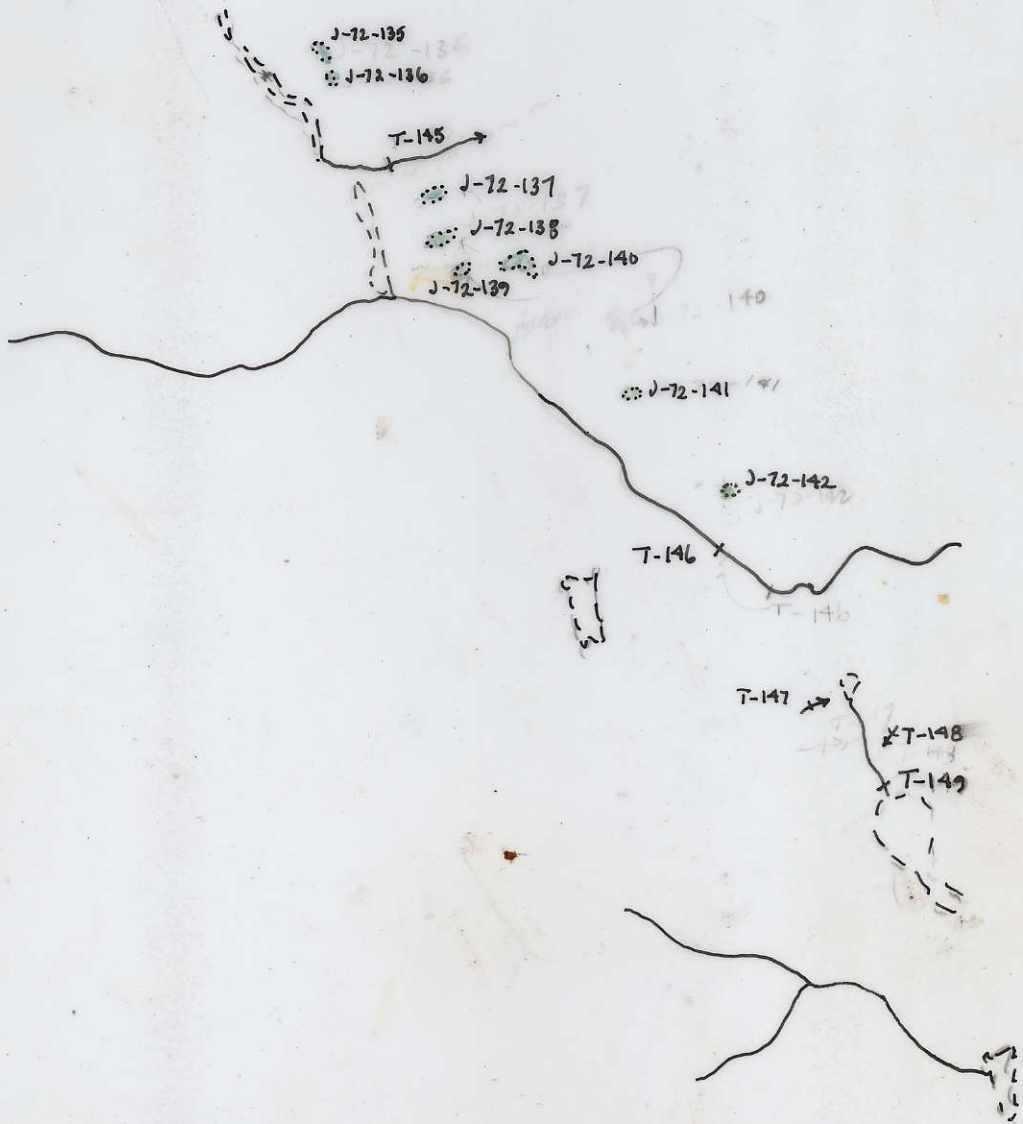 J-72-135
J-72-136
T-145
J-72-137
J-72-138
J-72-140
J-72-139
140
J-72-141
J-72-142
T-146
T-146
T-147
T-148
T-149